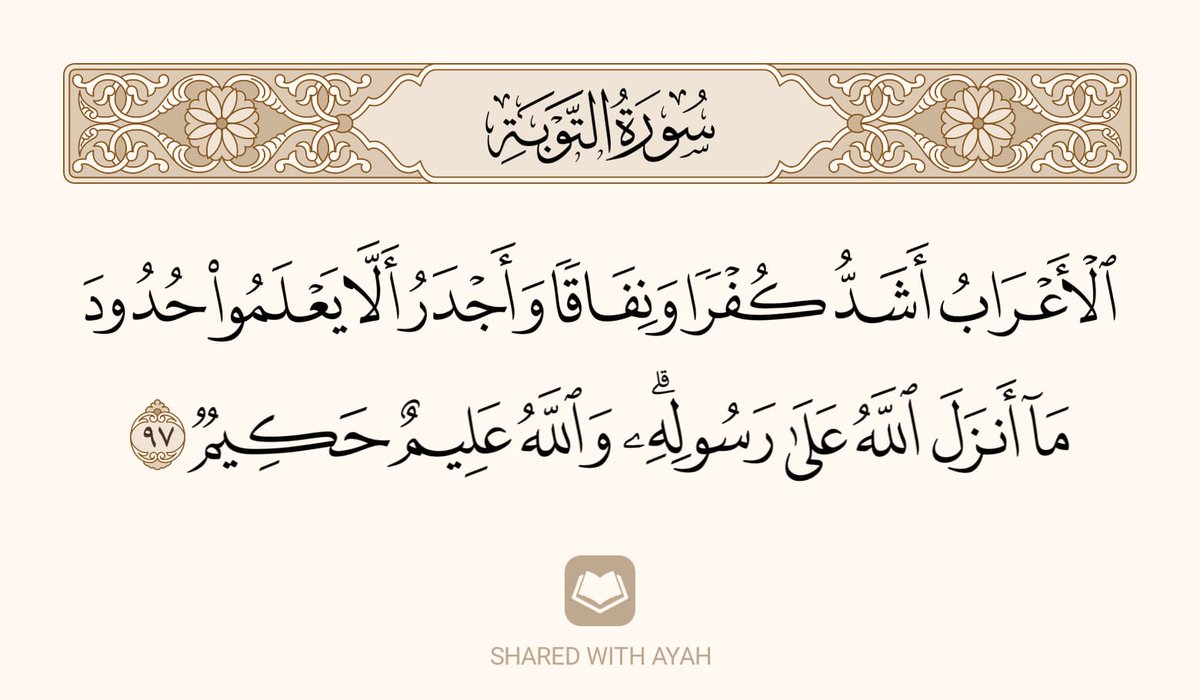 سُورَةُ التَّوۡبَةِ
ٱلۡأَعۡرَابُ أَشَدُّ كُفۡرٗا وَنِفَاقٗا وَأَجۡدَرُ أَلَّا يَعۡلَمُواْ حُدُودَ
مَآ أَنزَلَ ٱللَّهُ عَلَىٰ رَسُولِهِۦۗ وَٱللَّهُ عَلِيمٌ حَكِيمٞ ٩٧
SHARED WITH AYAH